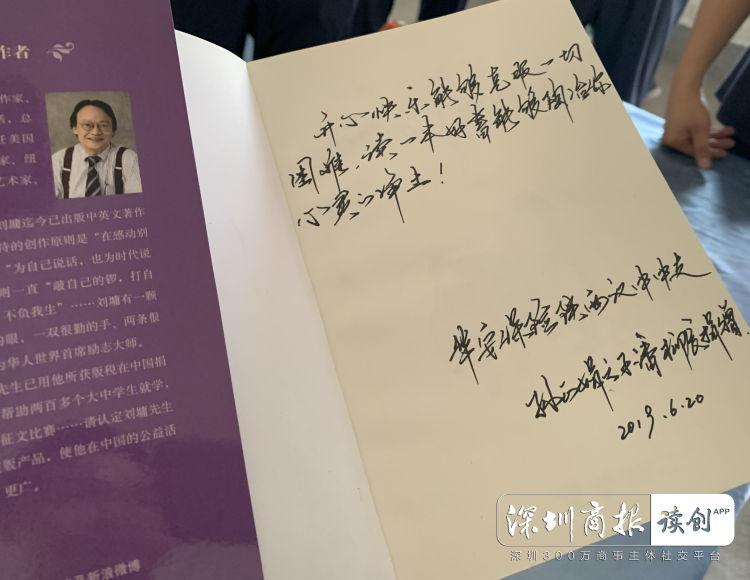 作者
作家、
活、总
任美国
家、纽
艺术家、
刘墉迄今已出版中英文著作
持的创作原则是“在感动别
“为自己说话，也为时代说
则一直“敲自己的锣，打自
不负我生”……刘墉有一颗
的眼、一双很勤的手、两条很
为华人世界首席励志大师。
先生已用他所获版税在中国捐
帮助两百多个大中学生就学，
征文比赛……请认定刘墉先生
版产品，使他在中国的公益活
更广。
新浪微博
开心快乐能够克服一切
困难，读一本好书能够陶冶你
心灵的净土！
华安保险陕西汉中中支
孙 之子潘 捐赠
2019.6.20
深圳商报 读创APP
深圳300万商事主体社交平台